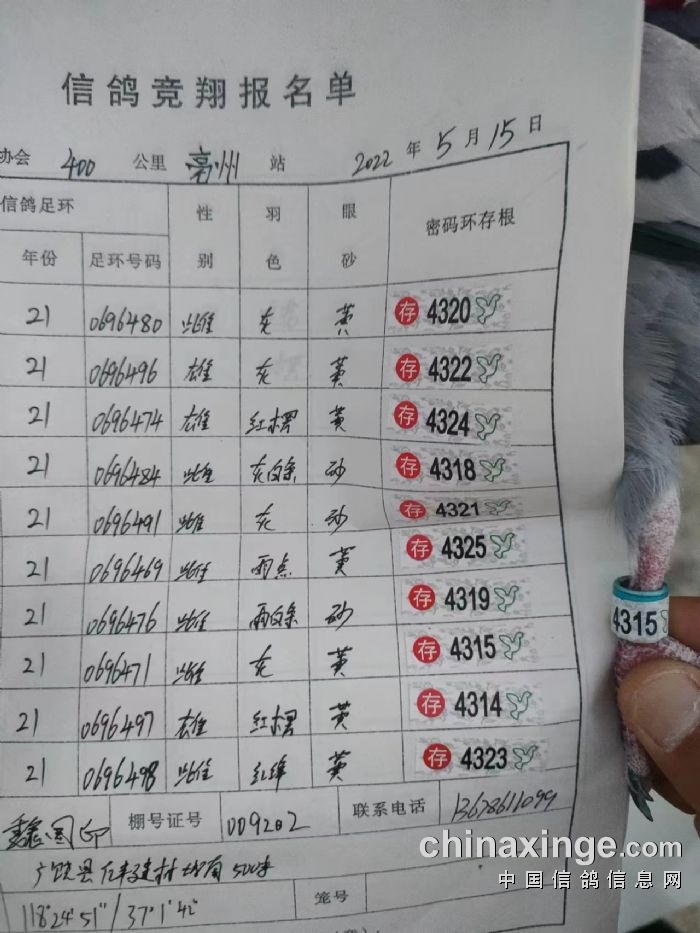 信鸽竞翔报名单
协会 400 公里 亳州 站 2022 年 5 月 15 日
信鸽足环 性别 羽色 眼砂 密码环存根
年份 足环号码
21 0696480 雌 灰 黄 存 4320
21 0696496 雄 灰 黄 存 4322
21 0696474 雄 红楞 黄 存 4324
21 0696484 雌 灰白条 砂 存 4318
21 0696491 雌 灰 砂 存 4321
21 0696469 雌 雨点 黄 存 4325
21 0696476 雌 雨白条 砂 存 4319
21 0696471 雌 灰 黄 存 4315
21 0696497 雄 红楞 黄 存 4314
21 0696498 雌 红绛 黄 存 4323
4315
棚号证号 009202 联系电话 13678611099
500米
118°24'51"/37°1'42" 笼号
chinaxinge.com
中国信鸽信息网